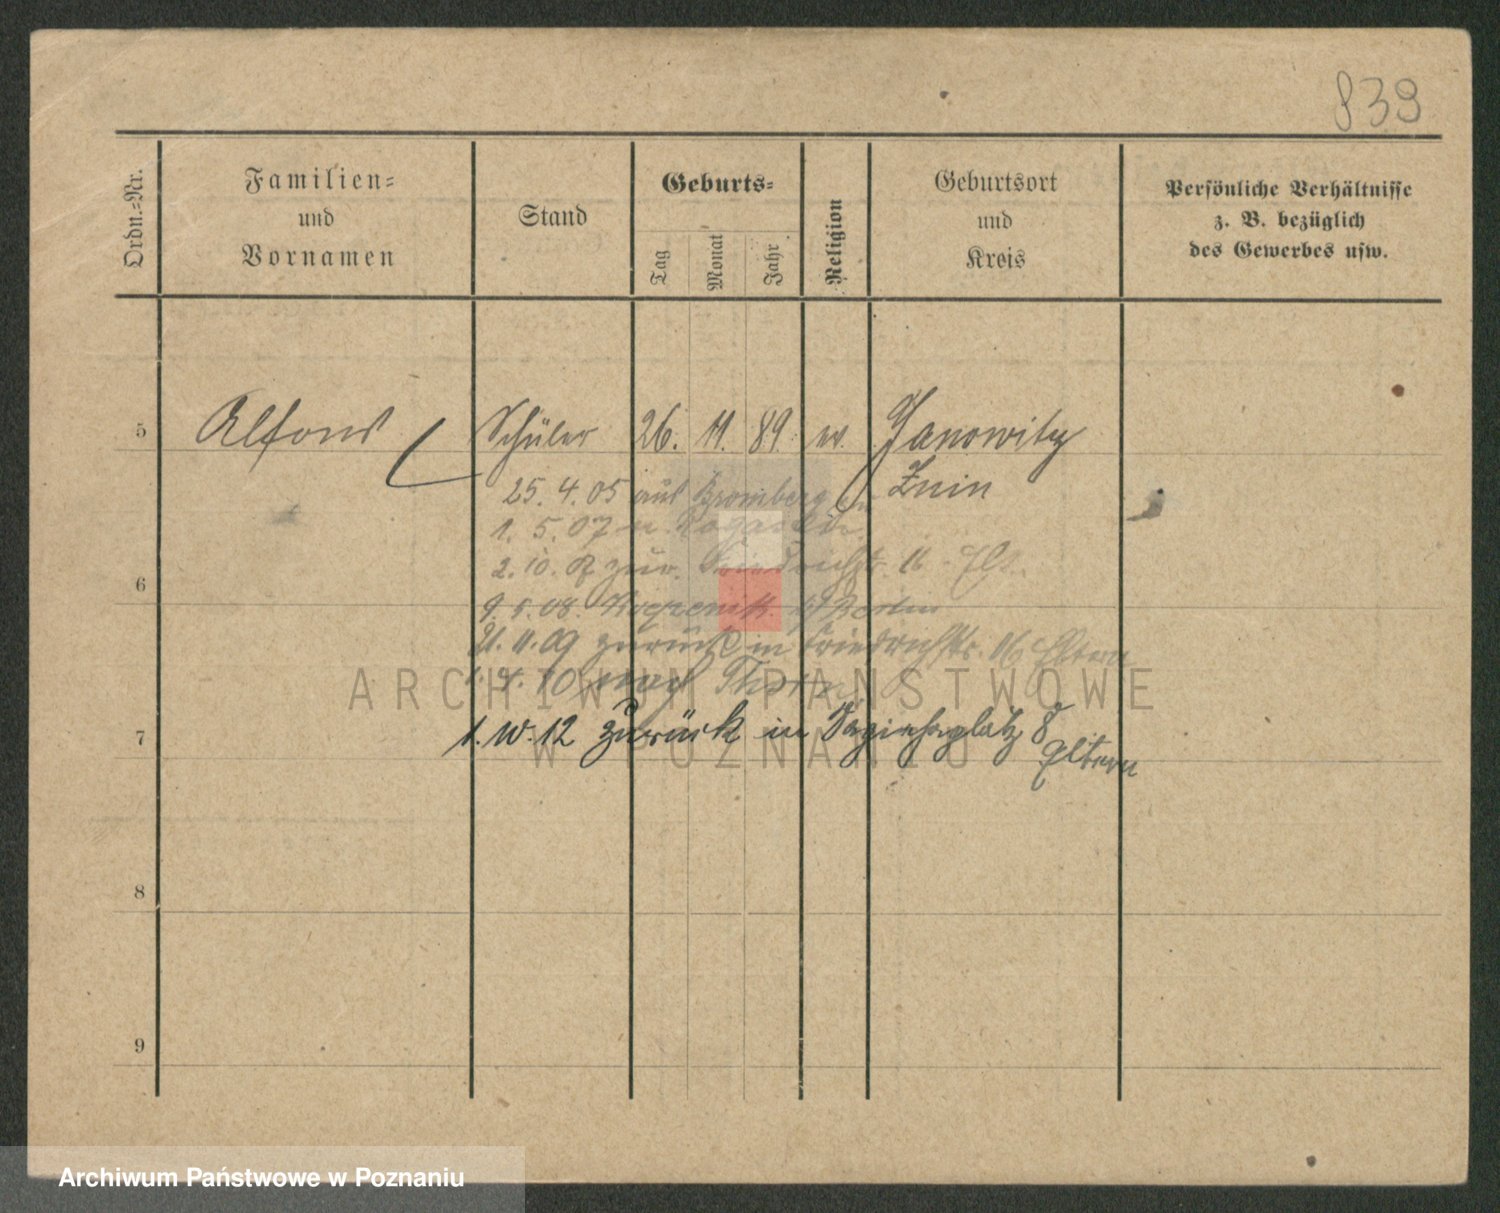 839
Ordn.-Nr.
Familien-
und
Vornamen
Stand
Geburts-
Tag
Monat
Jahr
Religion
Geburtsort
und
Kreis
Persönliche Verhältnisse
z. B. bezüglich
des Gewerbes usw.
5 Alfons Schüler 26. 11. 89. Janowitz
Znin
25. 4. 05 aus Bromberg
1. 5. 07
2. 10. zur. Friedrichstr. 16
6
9. 5. 08. Berlin
21. 11. 09 zurück in Friedrichstr. 16 Eltern
10 nach Thorn
7
1. 10. 12 zurück in Sapiehaplatz 8
Eltern
8
9
ARCHIWUM PAŃSTWOWE
W POZNANIU
Archiwum Państwowe w Poznaniu